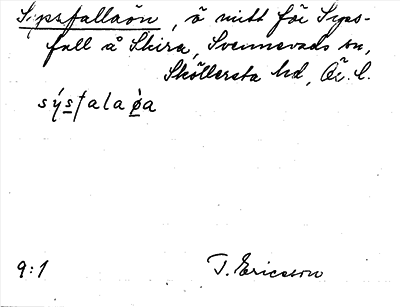 Sipsfallaön, ö mitt för Syps-
fall å Skira, Svennevads sn,
Sköllersta hd, Ör. l.
sýsfalaøa
9:1 T. Ericsson